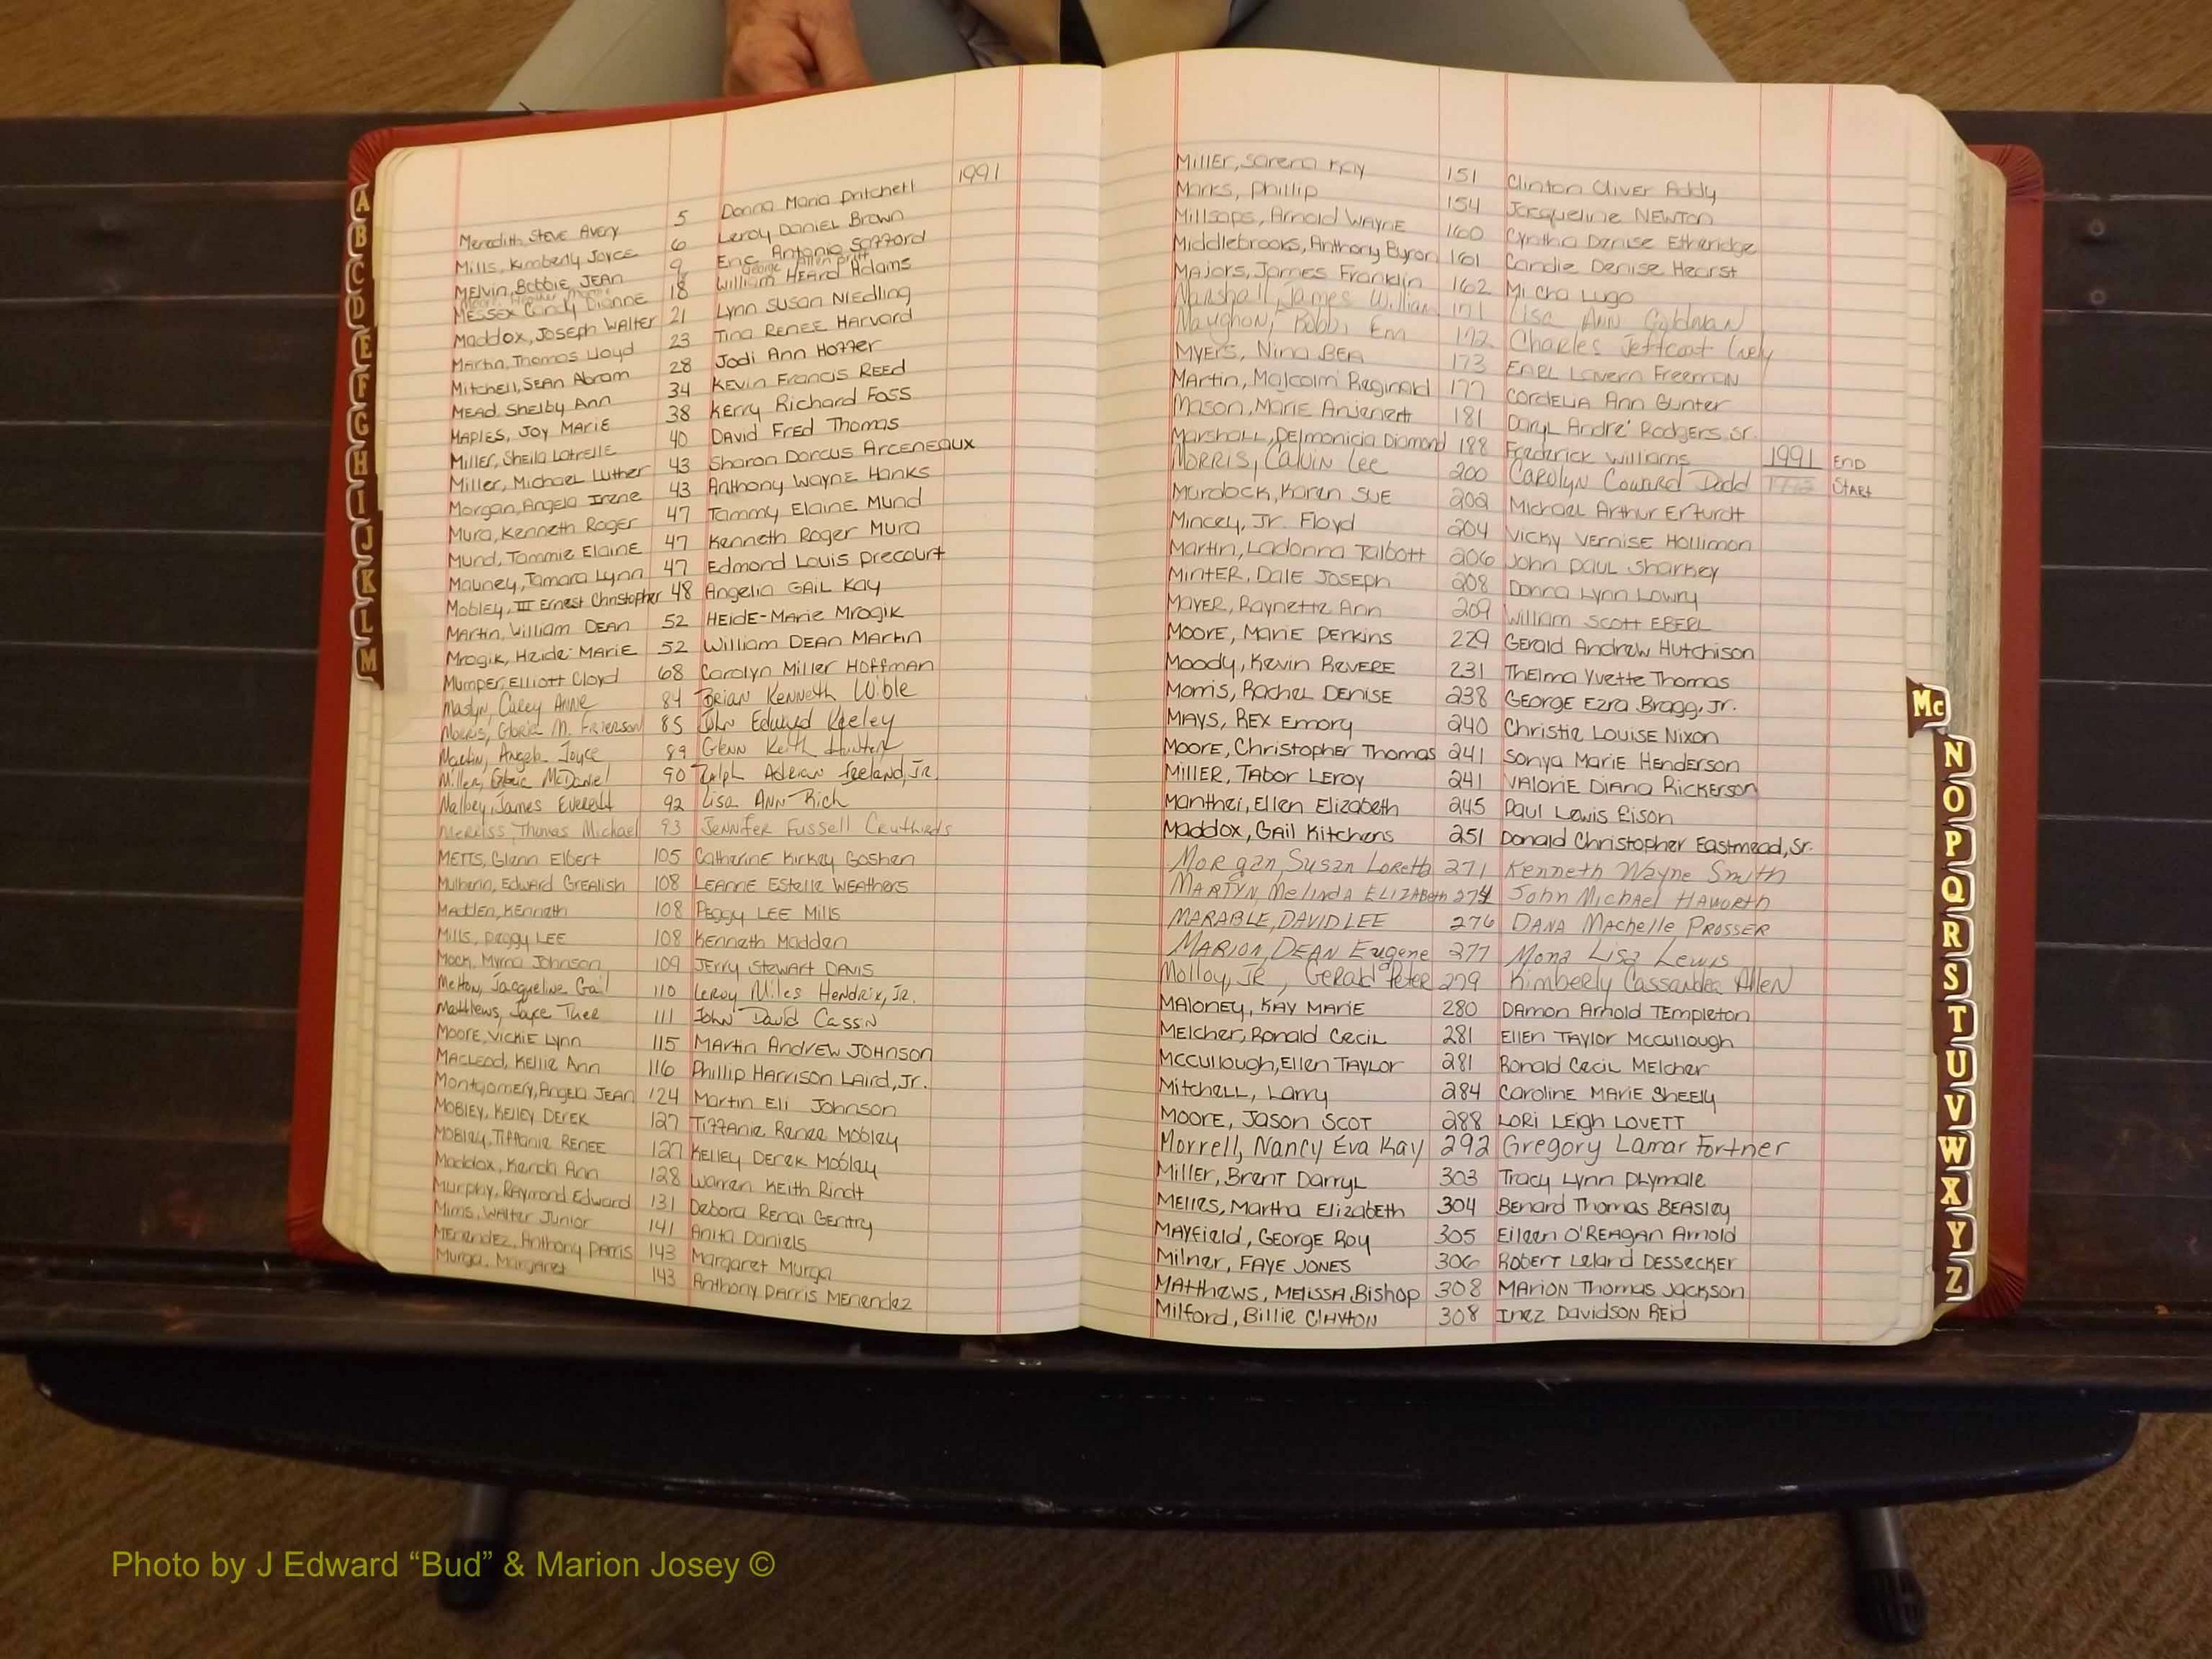 1991
Meredith, Steve Avery 5 Donna Maria Pritchett
Mills, Kimberly Joyce 6 Leroy Daniel Brown
Melvin, Bobbie Jean 9 Eric Antonio Safford
George Allen Britt
Messex Cindy Dianne 18 William Heard Adams
Maddox, Joseph Walter 21 Lynn Susan Niedling
Martin, Thomas Lloyd 23 Tina Renee Harvard
Mitchell, Sean Abram 28 Jodi Ann Hoffer
Mead, Shelby Ann 34 Kevin Francis Reed
Maples, Joy Marie 38 Kerry Richard Foss
Miller, Sheila Latrelle 40 David Fred Thomas
Miller, Michael Luther 43 Sharon Dorcus Arceneaux
Morgan, Angela Irene 43 Anthony Wayne Hanks
Mura, Kenneth Roger 47 Tammy Elaine Mund
Mund, Tammie Elaine 47 Kenneth Roger Mura
Mauney, Tamara Lynn 47 Edmond Louis Precourt
Mobley, III Ernest Christopher 48 Angelia Gail Kay
Martin, William Dean 52 Heide-Marie Mrogik
Mrogik, Heide-Marie 52 William Dean Martin
Mumper, Elliott Cloyd 68 Carolyn Miller Hoffman
Maslyn, Carey Anne 84 Brian Kenneth Wible
Morris, Gloria M. Frierson 85 John Edward Keeley
Martin, Angela Joyce 89 Glenn Keith Hunter
Miller, McDaniel 90 Ralph Adrian Freeland, Jr.
Malloy, James Everett 92 Lisa Ann Rich
Merriss, Thomas Michael 93 Jennifer Fussell Cruthirds
Metts, Glenn Elbert 105 Catherine Kirkey Goshen
Mulherin, Edward Grealish 108 Leanne Estelle Weathers
Madden, Kenneth 108 Peggy Lee Mills
Mills, Peggy Lee 108 Kenneth Madden
Mock, Myrna Johnson 109 Jerry Stewart Davis
Melton, Jacqueline Gail 110 Leroy Miles Hendrix, Jr.
Matthews, Joyce Thee 111 John David Cassin
Moore, Vickie Lynn 115 Martin Andrew Johnson
Macleod, Kellie Ann 116 Phillip Harrison Laird, Jr.
Montgomery, Angela Jean 124 Martin Eli Johnson
Mobley, Kelley Derek 127 Tiffanie Renee Mobley
Mobley, Tiffanie Renee 127 Kelley Derek Mobley
Maddox, Kenda Ann 128 Warren Keith Rindt
Murphy, Raymond Edward 131 Debora Renai Gentry
Mims, Walter Junior 141 Anita Daniels
Menendez, Anthony Darris 143 Margaret Murga
Murga, Margaret 143 Anthony Darris Menendez
Miller, Sarena Kay 151 Clinton Oliver Addy
Marks, Phillip 154 Jacqueline Newton
Millsaps, Arnold Wayne 160 Cyntha Denise Etheridge
Middlebrooks, Anthony Byron 161 Candie Denise Hearst
Majors, James Franklin 162 Micha Lugo
Marshall, James William 171 Lisa Ann Goldman
Maughon, Bobbi Em 172 Charles Jeffcoat Ively
Myers, Nina Bea 173 Earl Lavern Freeman
Martin, Malcolm Reginald 177 Cordelia Ann Gunter
Mason, Marie Anjenett 181 Daryl Andre' Rodgers, Sr.
Marshall, Delmonicia Diamond 188 Frederick Williams 1991 End
Morris, Calvin Lee 200 Carolyn Coward Dodd Start
Murdock, Karen Sue 202 Michael Arthur Erfurdt
Mincey, Jr. Floyd 204 Vicky Vernise Hollimon
Martin, Ladonna Talbott 206 John Paul Sharkey
Minter, Dale Joseph 208 Donna Lynn Lowry
Mayer, Raynette Ann 209 William Scott Eberl
Moore, Marie Perkins 229 Gerald Andrew Hutchison
Moody, Kevin Revere 231 Thelma Yvette Thomas
Morris, Rachel Denise 238 George Ezra Bragg, Jr.
Mays, Rex Emory 240 Christie Louise Nixon
Moore, Christopher Thomas 241 Sonya Marie Henderson
Miller, Tabor Leroy 241 Valorie Diana Rickerson
Manthei, Ellen Elizabeth 245 Paul Lewis Eison
Maddox, Gail Kitchens 251 Donald Christopher Eastmead, Sr.
Morgan, Susan Loretta 271 Kenneth Wayne Smith
Martyn, Melinda Elizabeth 274 John Michael Haworth
Marable, David Lee 276 Dana Machelle Prosser
Marion, Dean Eugene 277 Mona Lisa Lewis
Molloy, Jr., Gerald Peter 279 Kimberly Cassandra Allen
Maloney, Kay Marie 280 Damon Arnold Templeton
Melcher, Ronald Cecil 281 Ellen Taylor McCullough
McCullough, Ellen Taylor 281 Ronald Cecil Melcher
Mitchell, Larry 284 Caroline Marie Sheely
Moore, Jason Scot 288 Lori Leigh Lovett
Morrell, Nancy Eva Kay 292 Gregory Lamar Fortner
Miller, Brent Darryl 303 Tracy Lynn Plymale
Melles, Martha Elizabeth 304 Benard Thomas Beasley
Mayfield, George Roy 305 Eileen O'Reagan Arnold
Milner, Faye Jones 306 Robert Leland Dessecker
Matthews, Melissa Bishop 308 Marion Thomas Jackson
Milford, Billie Clayton 308 Inez Davidson Reid
A
B
C
D
E
F
G
H
I
J
K
L
M
Mc
N
O
P
Q
R
S
T
U
V
W
X
Y
Z
Photo by J Edward “Bud” & Marion Josey ©